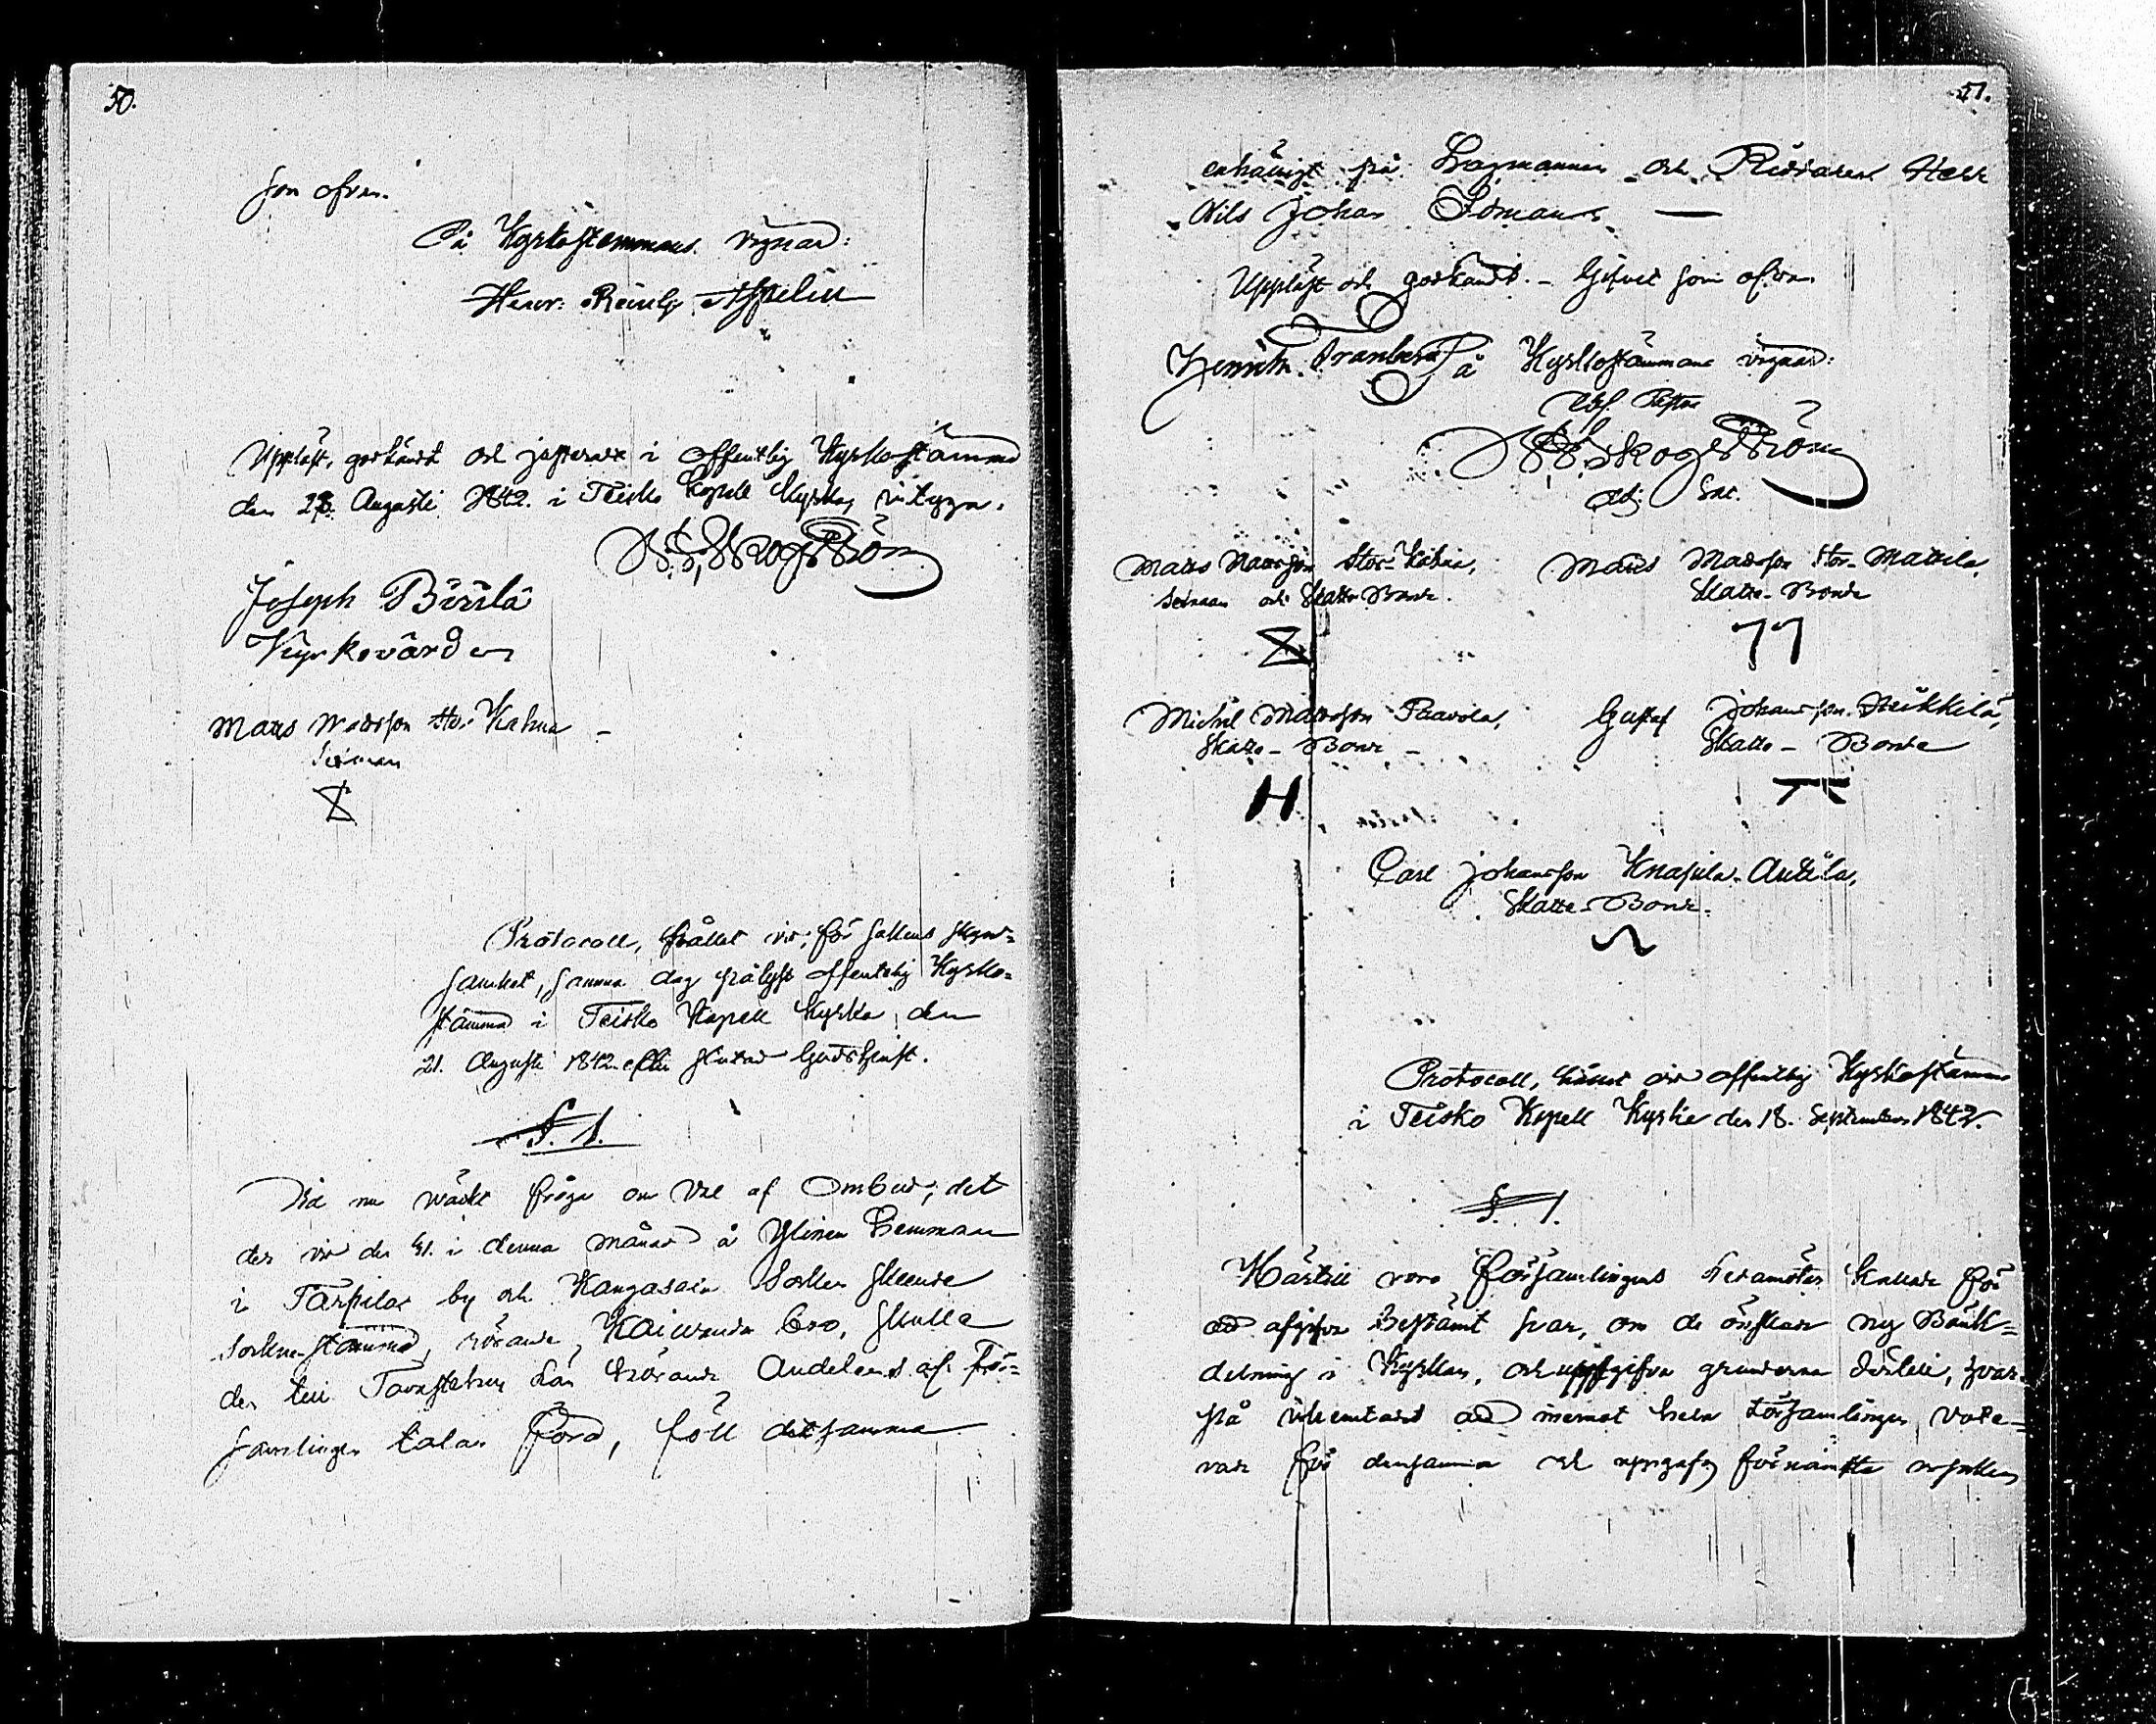 50.
som ofvan.
På Kyrkostemmans vägnar:
Henr: Reinh: Aspelin
Uppläst, godkändt och justeradt i offentlig Kyrkostämma
den 28. Augusti 1842. i Teisko Kapell Kyrka, intyga.
Skogström
Joseph Pirilä
Kyrkovärden
Matts Mattsson Stor-Kahna
Sexman
Protocoll, hållet vid, för sakens skynd=
samhet, samma dag pålyst offentlig Kyrko=
stämma i Teisko Kapell Kyrka den
21. Augusti 1842 efter slutad Gudstjenst.
§. 1.
Då nu väckt fråga om Val af Ombud, det
der vid den 31. i denna månad å Ylinen Hemman
i Tarpila by och Kangasala Socken skeende
Sockne-stämma, rörande Kaivanda bro, skulle
den till Tavastehus Län hörande Andelens af För=
samlingen talan föra, föll detsamma
51.
enhälligt på Lagmannen och Riddaren Herr
Nils Johan Idman. —
Uppläst och godkändt. - Gifvet som ofvan
Henrik Tranberg På Kyrkostämmans vägnar:
Skogström
Adj: Sac.
Matts Mattsson Stor-Kahna, Matts Mattsson Stor-Mattila,
Sexman och Skatte-Bonde. Skatte-Bonde
Michel Mattsson Paavola, Gustaf Johansson Neikkilä,
Skatte-Bonde - Skatte-Bonde
H
Carl Johansson Knapila-Anttila,
Skatte-Bonde.
Protocoll, hållet vid offentlig Kyrkostämma
i Teisko Kapell Kyrka den 18. September 1842.
§. 1.
Härtill voro Församlingens Ledamöter kallade för
att afgifva bestämt svar, om de önskade ny Bänk=
delning i Kyrkan, och uppgifva grunderna dertill, hvar=
på inhemtades att inemot hela Församlingen vote=
rade för densamma och uppgaf förnämsta orsaken